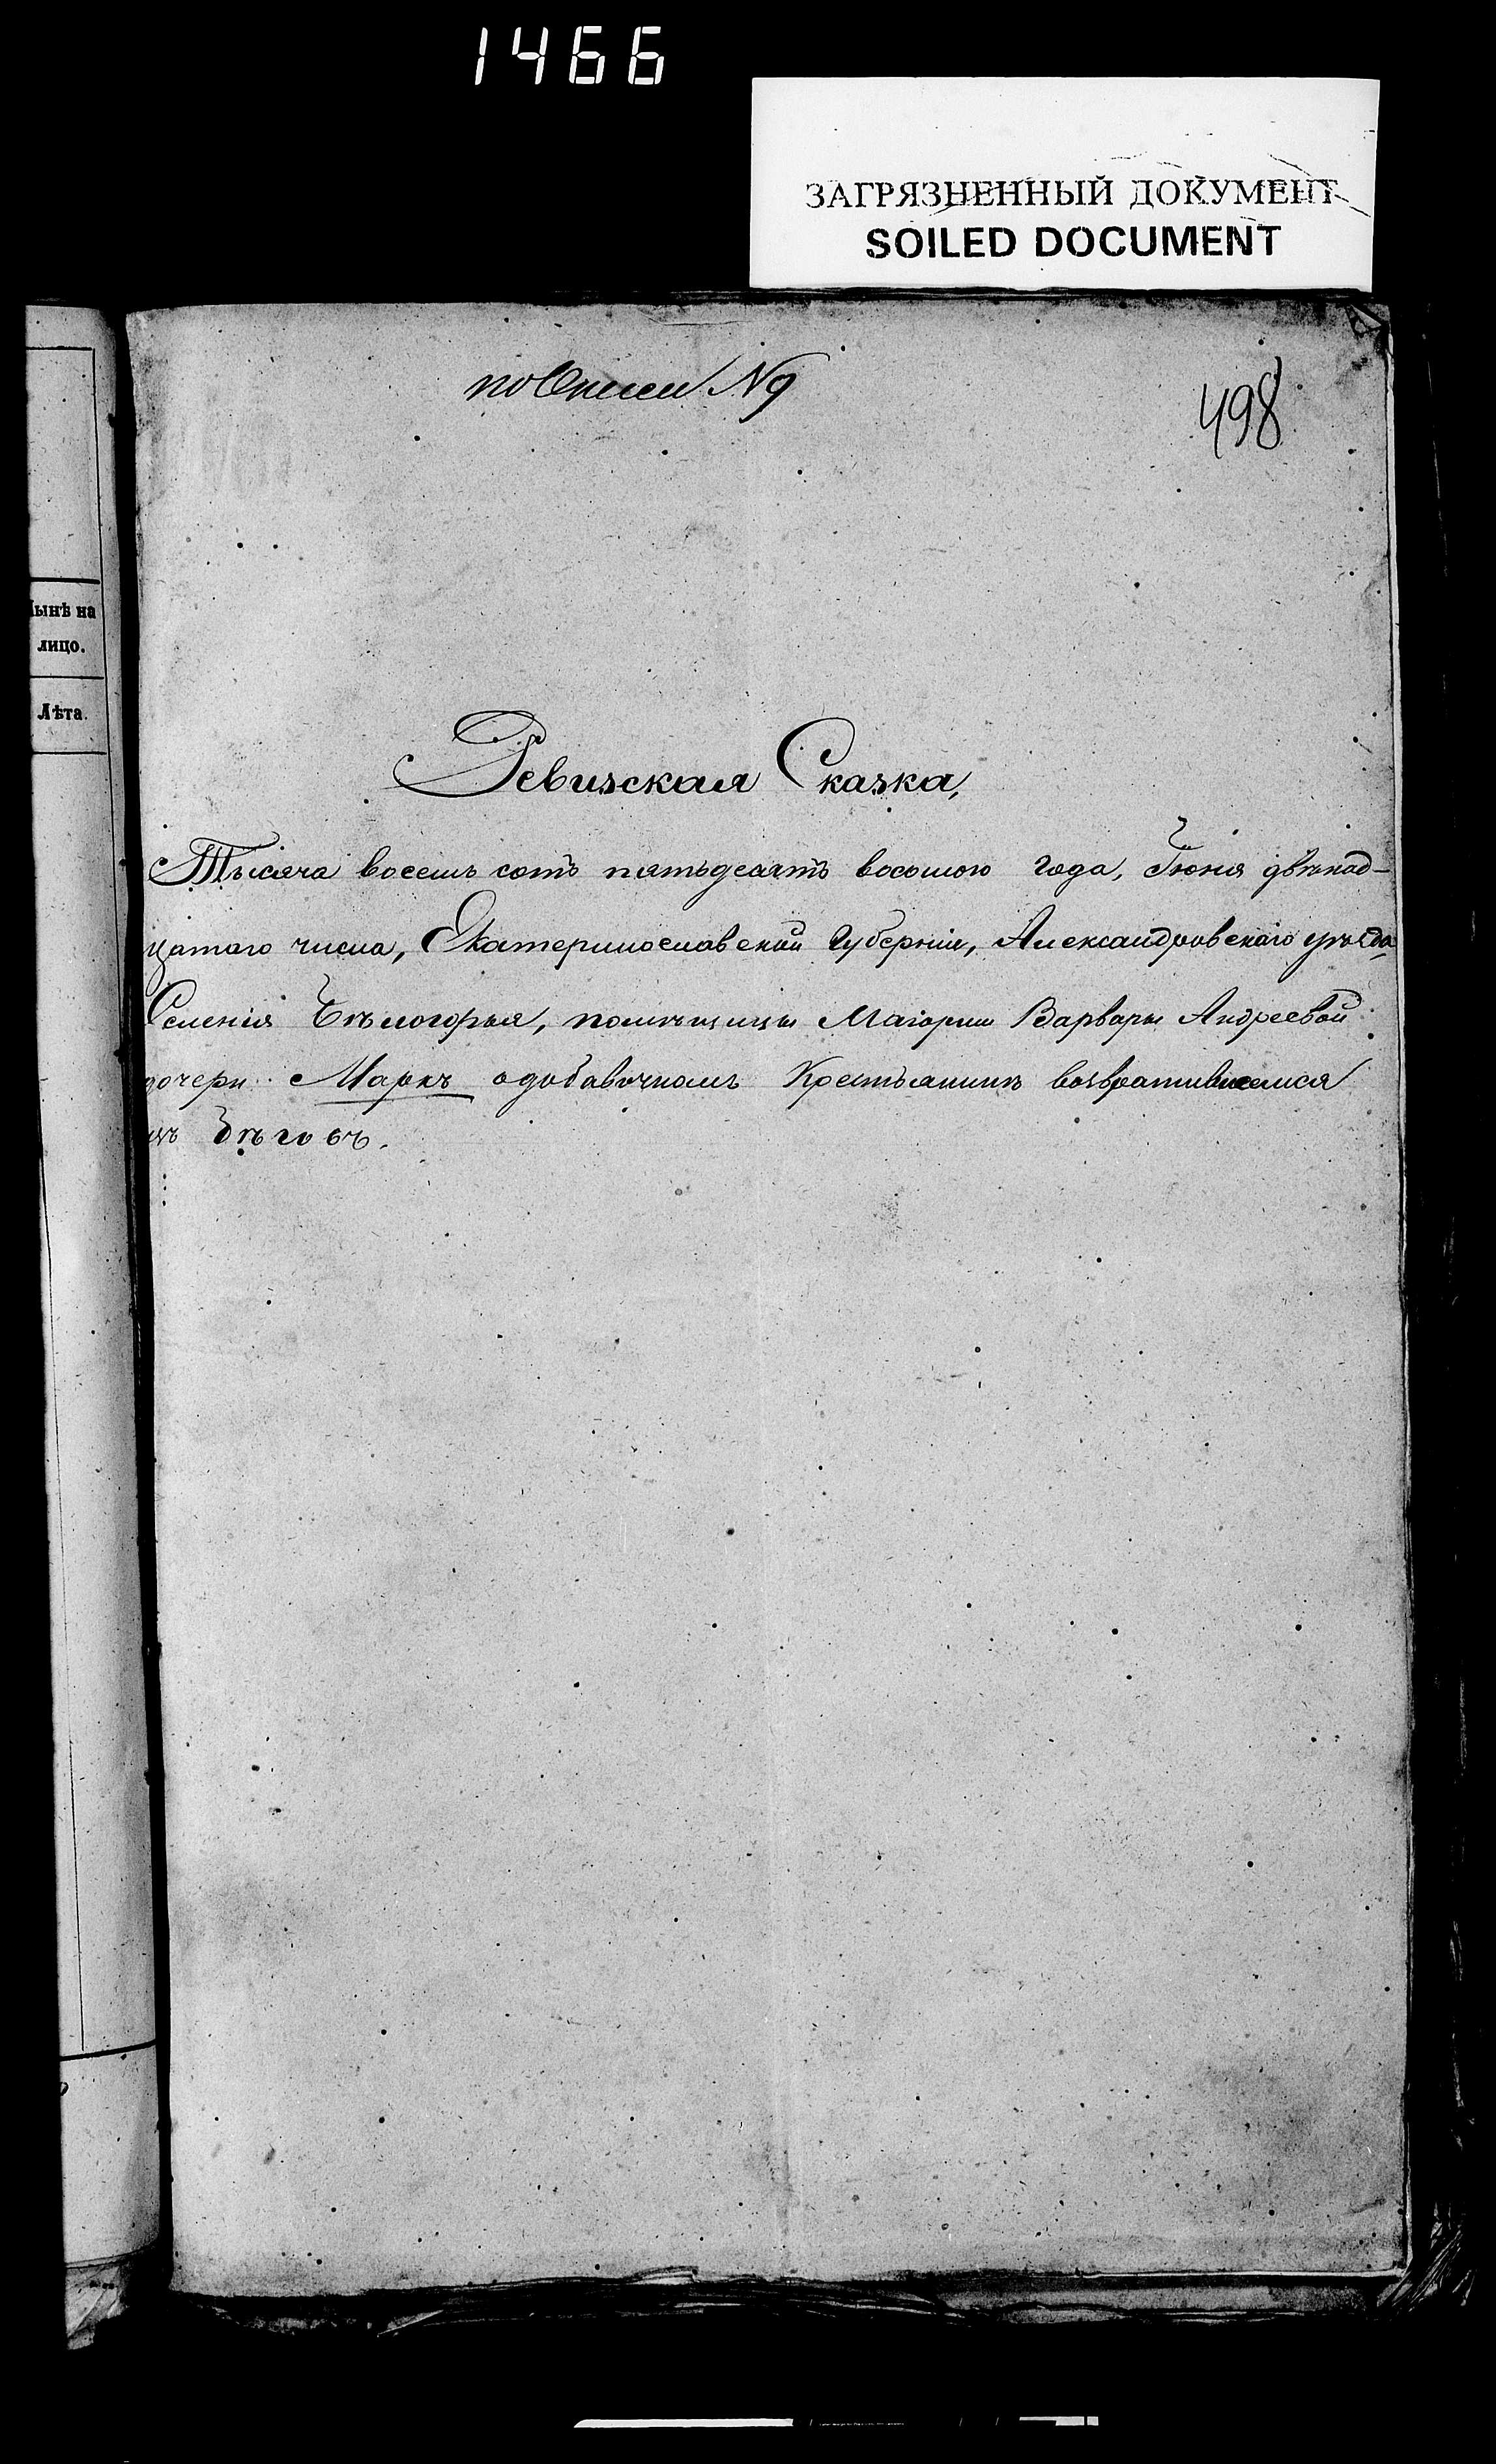 1466
ЗАГРЯЗНЕННЫЙ ДОКУМЕНТ
SOILED DOCUMENT
по Описи №9
498
Нынѣ на
лицо.
Лѣта.
Ревизская Сказка,
Тысяча восемь сотъ пятьдесятъ восьмого года, Іюня двѣнад-
цатаго числа, Екатеринославской Губерніи, Александровскаго уѣзда
Селенія Бѣлогорья, помѣщицы Маіорши Варвары Андреевой
дочери Маркъ одобавочномъ Крестьянинѣ возвратившемся
изъ бѣговъ.